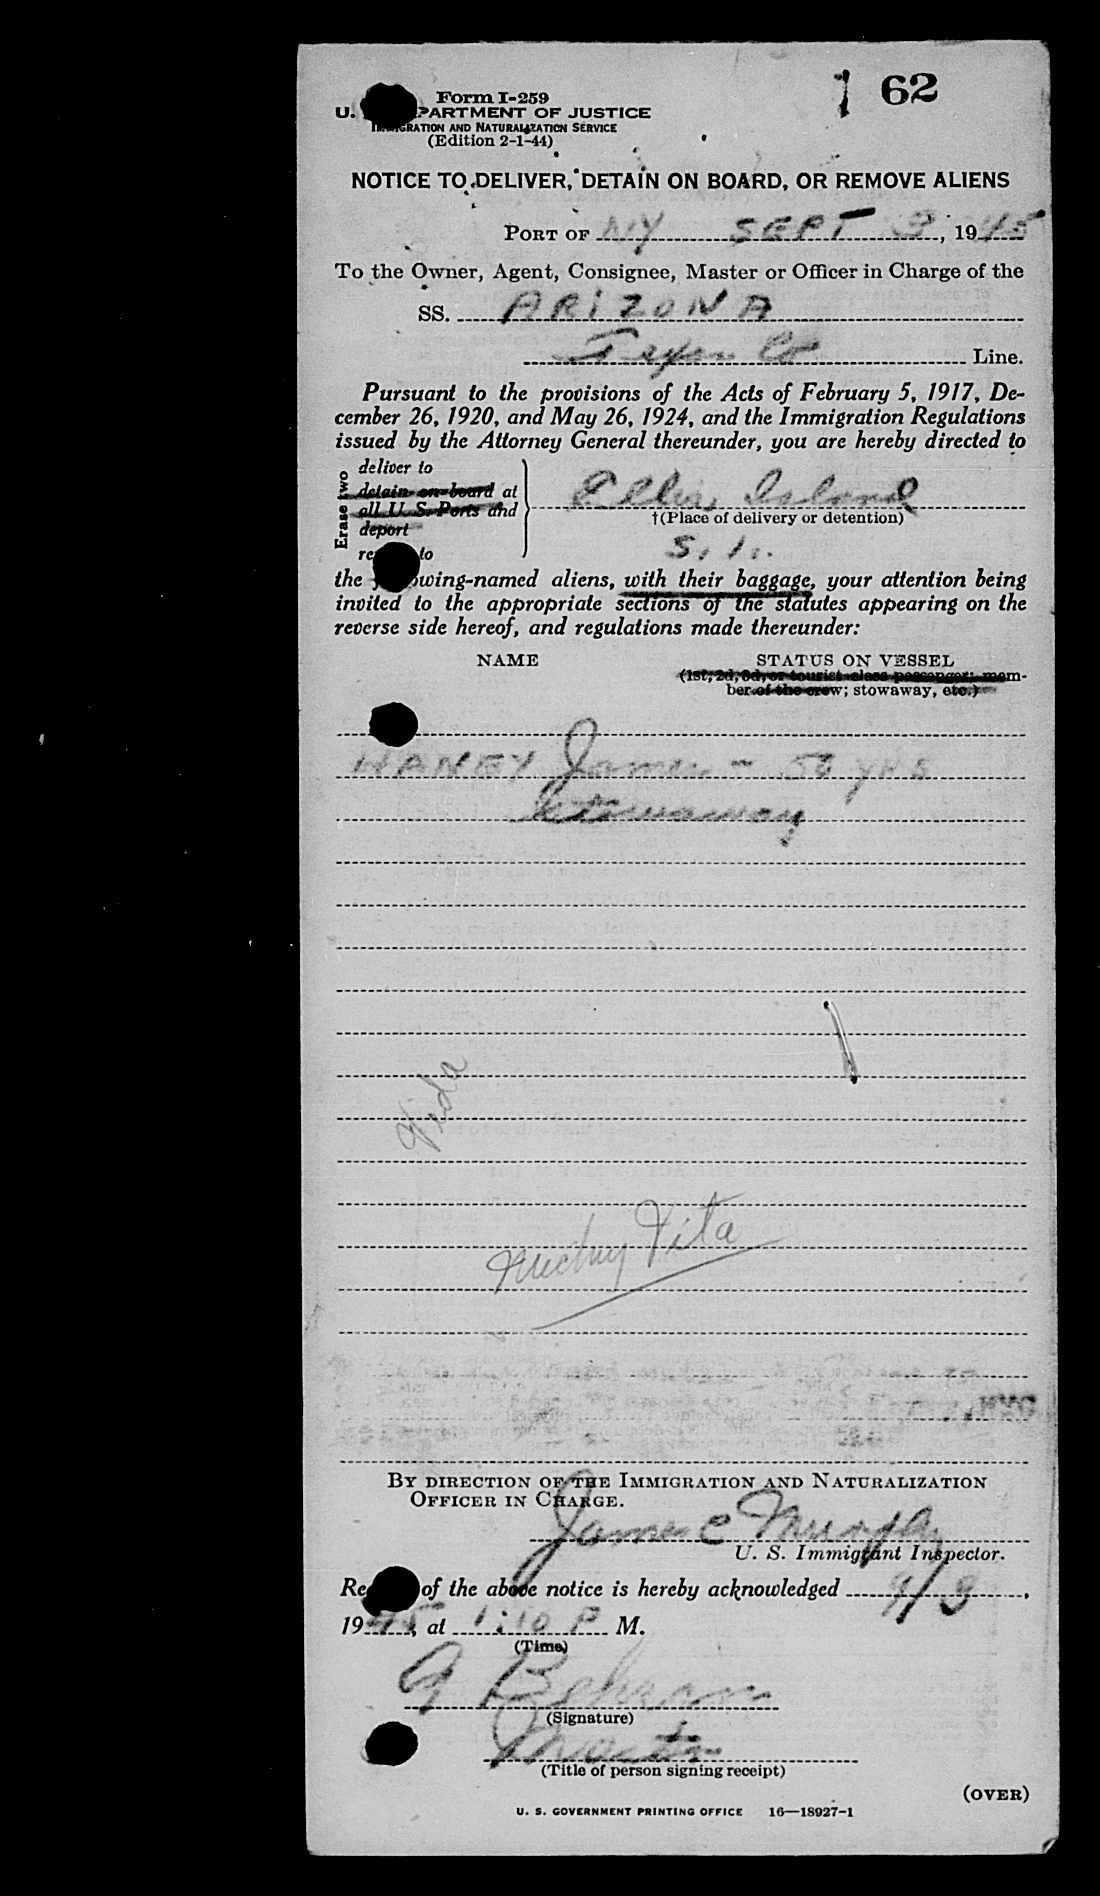 62
Form I-259
U. S. DEPARTMENT OF JUSTICE
IMMIGRATION AND NATURALIZATION SERVICE
(Edition 2-1-44)
NOTICE TO DELIVER, DETAIN ON BOARD, OR REMOVE ALIENS
PORT OF NY SEPT 3, 1945
To the Owner, Agent, Consignee, Master or Officer in Charge of the
SS. ARIZONA
Texas Co Line.
Pursuant to the provisions of the Acts of February 5, 1917, De-
cember 26, 1920, and May 26, 1924, and the Immigration Regulations
issued by the Attorney General thereunder, you are hereby directed to
Erase two
deliver to
detain on board at
all U. S. Ports and
deport
remove to
Ellis Island
†(Place of delivery or detention)
S. I.
the following-named aliens, with their baggage, your attention being
invited to the appropriate sections of the statutes appearing on the
reverse side hereof, and regulations made thereunder:
NAME STATUS ON VESSEL
(1st, 2d, 3d, or tourist class passenger; mem-
ber of the crew; stowaway, etc.)
HANEY James - 56 yrs
Stowaway
Vita
By DIRECTION OF THE IMMIGRATION AND NATURALIZATION
OFFICER IN CHARGE.
James C Murphy
U. S. Immigrant Inspector.
Receipt of the above notice is hereby acknowledged 9/3,
1945, at 1:10 P M.
(Time)
(Signature)
Master
(Title of person signing receipt)
(OVER)
U. S. GOVERNMENT PRINTING OFFICE 16—18927-1